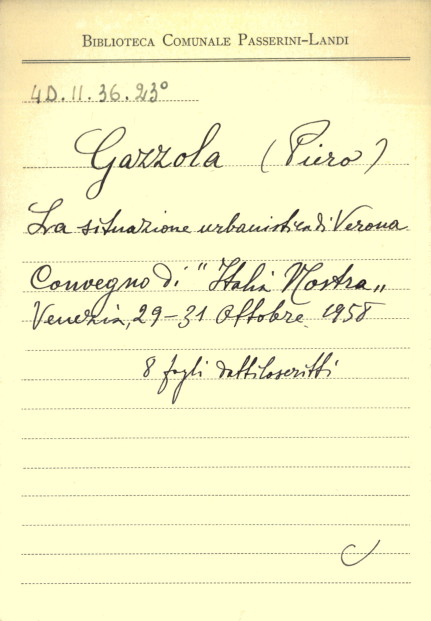 BIBLIOTECA COMUNALE PASSERINI-LANDI
4D.II.36.23°
Gazzola (Piero)
La situazione urbanistica di Verona
Convegno di "Italia Nostra„
Venezia, 29-31 Ottobre 1958
8 fogli dattiloscritti